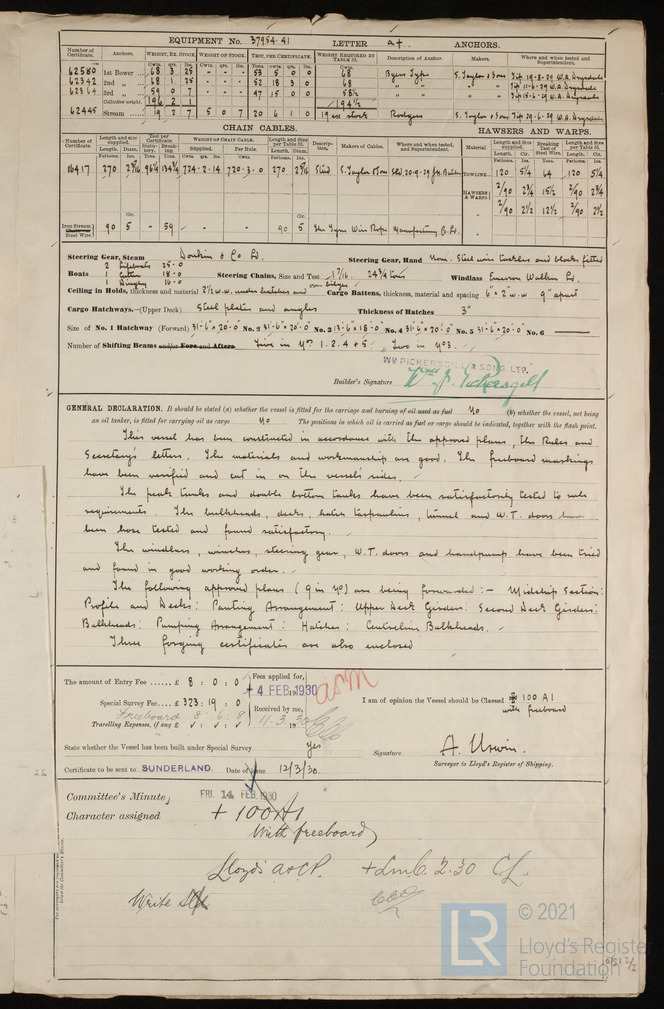 EQUIPMENT No. 37954.41 LETTER at. ANCHORS.
Number of Certificate. Anchors. WEIGHT, EX. STOCK. WEIGHT OF STOCK. TEST, PER CERTIFICATE. WEIGHT REQUIRED BY TABLE 31. Description of Anchor. Makers. Where and when tested and Superintendent.
Cwts. qrs. lbs. Cwts. qrs. lbs. Tons. cwts. qrs. lbs. Cwts.
62580 1st Bower 68 3 25 - - - 53 5 0 0 68 Byers Type S. Taylor & Sons
62342 2nd „ 68 1 25 - - - 52 18 3 0 68 „ „ „ „
62364 3rd „ 59 0 7 - - - 47 15 0 0 58½ „ „ „ „
Collective weight. 196 2 1 194½
62445 Stream 19 2 7 5 0 7 20 6 1 0 19 ex stock Rodgers S. Taylor & Sons
CHAIN CABLES. HAWSERS AND WARPS.
Number of Certificate. Length and size supplied. Test per Certificate. WEIGHT OF CHAIN CABLE. Length and size per Table 31. Description. Makers of Cables. Where and when tested, and Superintendent. Material. Length and Size supplied. Breaking Test of Steel Wire. Length and Size per Table 31.
Length. Diam. Statutory. Breaking. Supplied. Per Rule. Length. Diam. Length. Cir. Length. Cir.
16417 270 2 5/16 96¼ 134¾ 724.2.14 720.3.0 270 2 5/16 Stud S. Taylor & Sons TOWLINE 120 5¼ 64 120 5¼
HAWSERS & WARPS 2/90 2¾ 15½ 2/90 2¾
„ 2/90 2½ 12½ 2/90 2½
Iron Stream Steel Wire 90 5 - 59 90 5 The Tyne Wire Rope Manufacturing Co Ld.
Steering Gear, Steam Donkin & Co Ld. Steering Gear, Hand None. Steel wire tackles and blocks fitted
Boats 2 Lifeboats 25.0
1 Cutter 18.0 Steering Chains, Size and Test 1 1/16. 24¾ tons Windlass Emerson Walker Ld.
1 Dinghy 16.0
Ceiling in Holds, thickness and material 2½ w.w. under hatches and over bilges Cargo Battens, thickness, material and spacing 6" x 2" w.w 9" apart
Cargo Hatchways.—(Upper Deck) Steel plates and angles Thickness of Hatches 3"
Size of No. 1 Hatchway (Forward) 31-6" x 20'-0 No. 2 31-6" x 20'-0 No. 3 13-6" x 18'-0" No. 4 31-6" x 20'-0" No. 5 31-6" x 20'-0 No. 6
Number of Shifting Beams and/or Fore and Afters Five in Nos 1. 2. 4 & 5. Two in No 3.
WM PICKERSGILL & SONS, LTD.
Builder's Signature Wm J. Pickersgill
GENERAL DECLARATION. It should be stated (a) whether the vessel is fitted for the carriage and burning of oil used as fuel No (b) whether the vessel, not being
an oil tanker, is fitted for carrying oil as cargo No The positions in which oil is carried as fuel or cargo should be indicated, together with the flash point.
This vessel has been constructed in accordance with the approved plans, the Rules and
Secretary's letters. The materials and workmanship are good. The freeboard markings
have been verified and cut in on the vessel's sides.
The peak tanks and double bottom tanks have been satisfactorily tested to rule
requirements. The bulkheads, decks, hatch tarpaulins, tunnel and W.T. doors have
been hose tested and found satisfactory.
The windlass, winches, steering gear, W.T. doors and handpump have been tried
and found in good working order.
The following approved plans (9 in No) are being forwarded:- Midship Section:
Profile and Decks: Panting Arrangement: Upper Deck Girders: Second Deck Girders:
Bulkheads: Pumping Arrangement: Hatches: Centreline Bulkheads.
Three forging certificates are also enclosed
The amount of Entry Fee £ 8 : 0 : 0 Fees applied for,
4 FEB. 1930
Special Survey Fee £ 323 : 19 : 0 I am of opinion the Vessel should be Classed 100 A1
with freeboard
Freeboard 8 : 6 : 8 Received by me,
Travelling Expenses, if any £ 11.3.30
State whether the Vessel has been built under Special Survey Yes Signature A. Urwin.
Surveyor to Lloyd's Register of Shipping.
Certificate to be sent to SUNDERLAND. Date of issue 12/3/30.
Committee's Minute FRI. 14 FEB. 1930
Character assigned + 100A1
With freeboard
Lloyds A & CP. + LMC. 2.30 CL.
© 2021
LR Lloyd's Register
Foundation